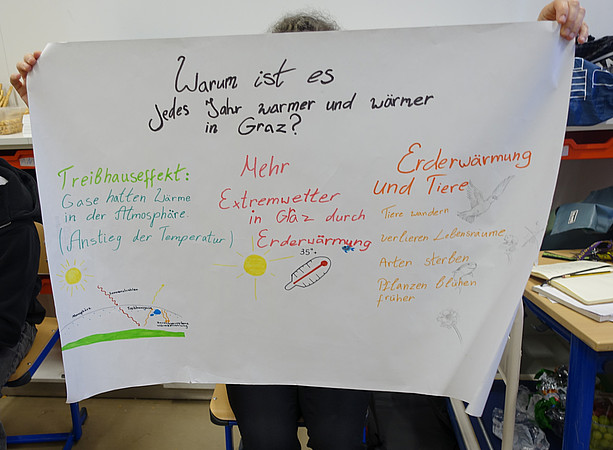 Warum ist es
jedes Jahr warmer und wärmer
in Graz?
Treißhauseffekt:
Gase halten Wärme
in der Atmosphäre
(Anstieg der Temperatur)
Mehr
Extremwetter
in Graz durch
Erderwärmung
35°
Erderwärmung
und Tiere
Tiere wandern
verlieren Lebensräume
Arten sterben
Pflanzen blühen
früher